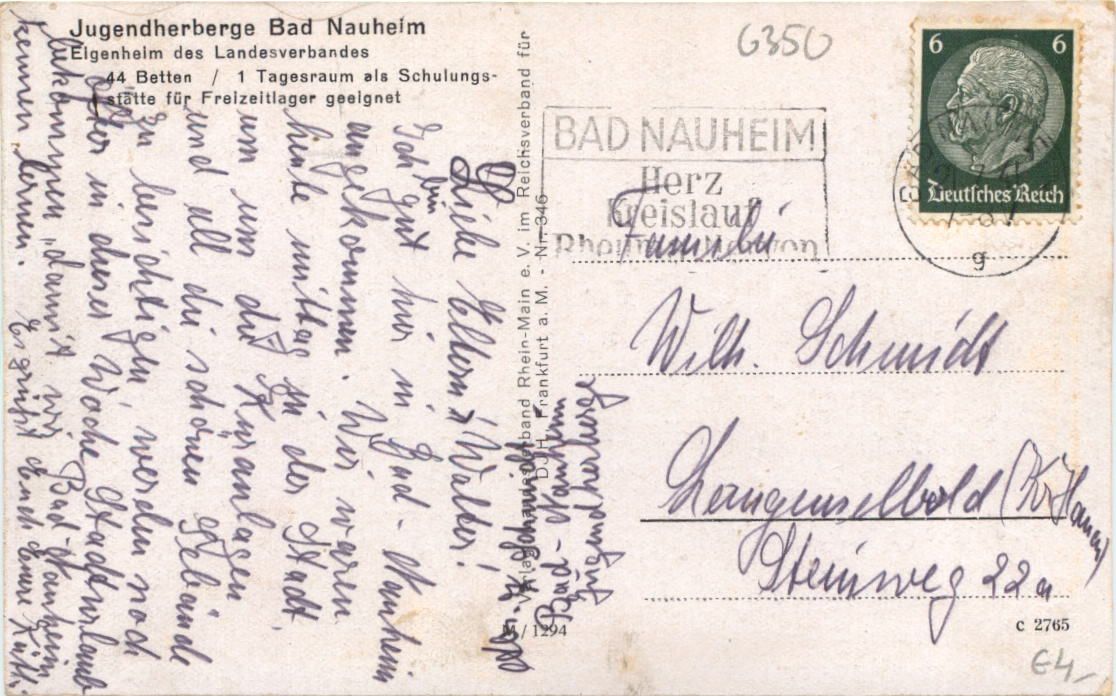 Jugendherberge Bad Nauheim
Eigenheim des Landesverbandes
44 Betten / 1 Tagesraum als Schulungs-
stätte für Freizeitlager geeignet
Liebe Eltern u. Walter!
Ich bin gut hier in Bad-Nauheim
angekommen. Wir waren
heute mittag in der Stadt,
um uns die Kuranlagen
und all die schönen Gebäude
zu besichtigen, werden noch
öfter in dieser Woche Stadturlaub
bekommen, damit wir Bad-Nauheim
kennen lernen. Es grüßt Euch Eure
Bad-Nauheim
Jugendherberge
Verlag: Landesverband Rhein-Main e. V. im Reichsverband für
D.J.H. Frankfurt a. M. - Nr. 346
M/1294
6350
BAD NAUHEIM
Herz
Kreislauf
Rheuma Nerven
6 6
Deutsches Reich
g
Familie
Wilh. Schmidt
Langenselbold (Kr. Hanau)
Steinweg 22a
C 2765
€4,-